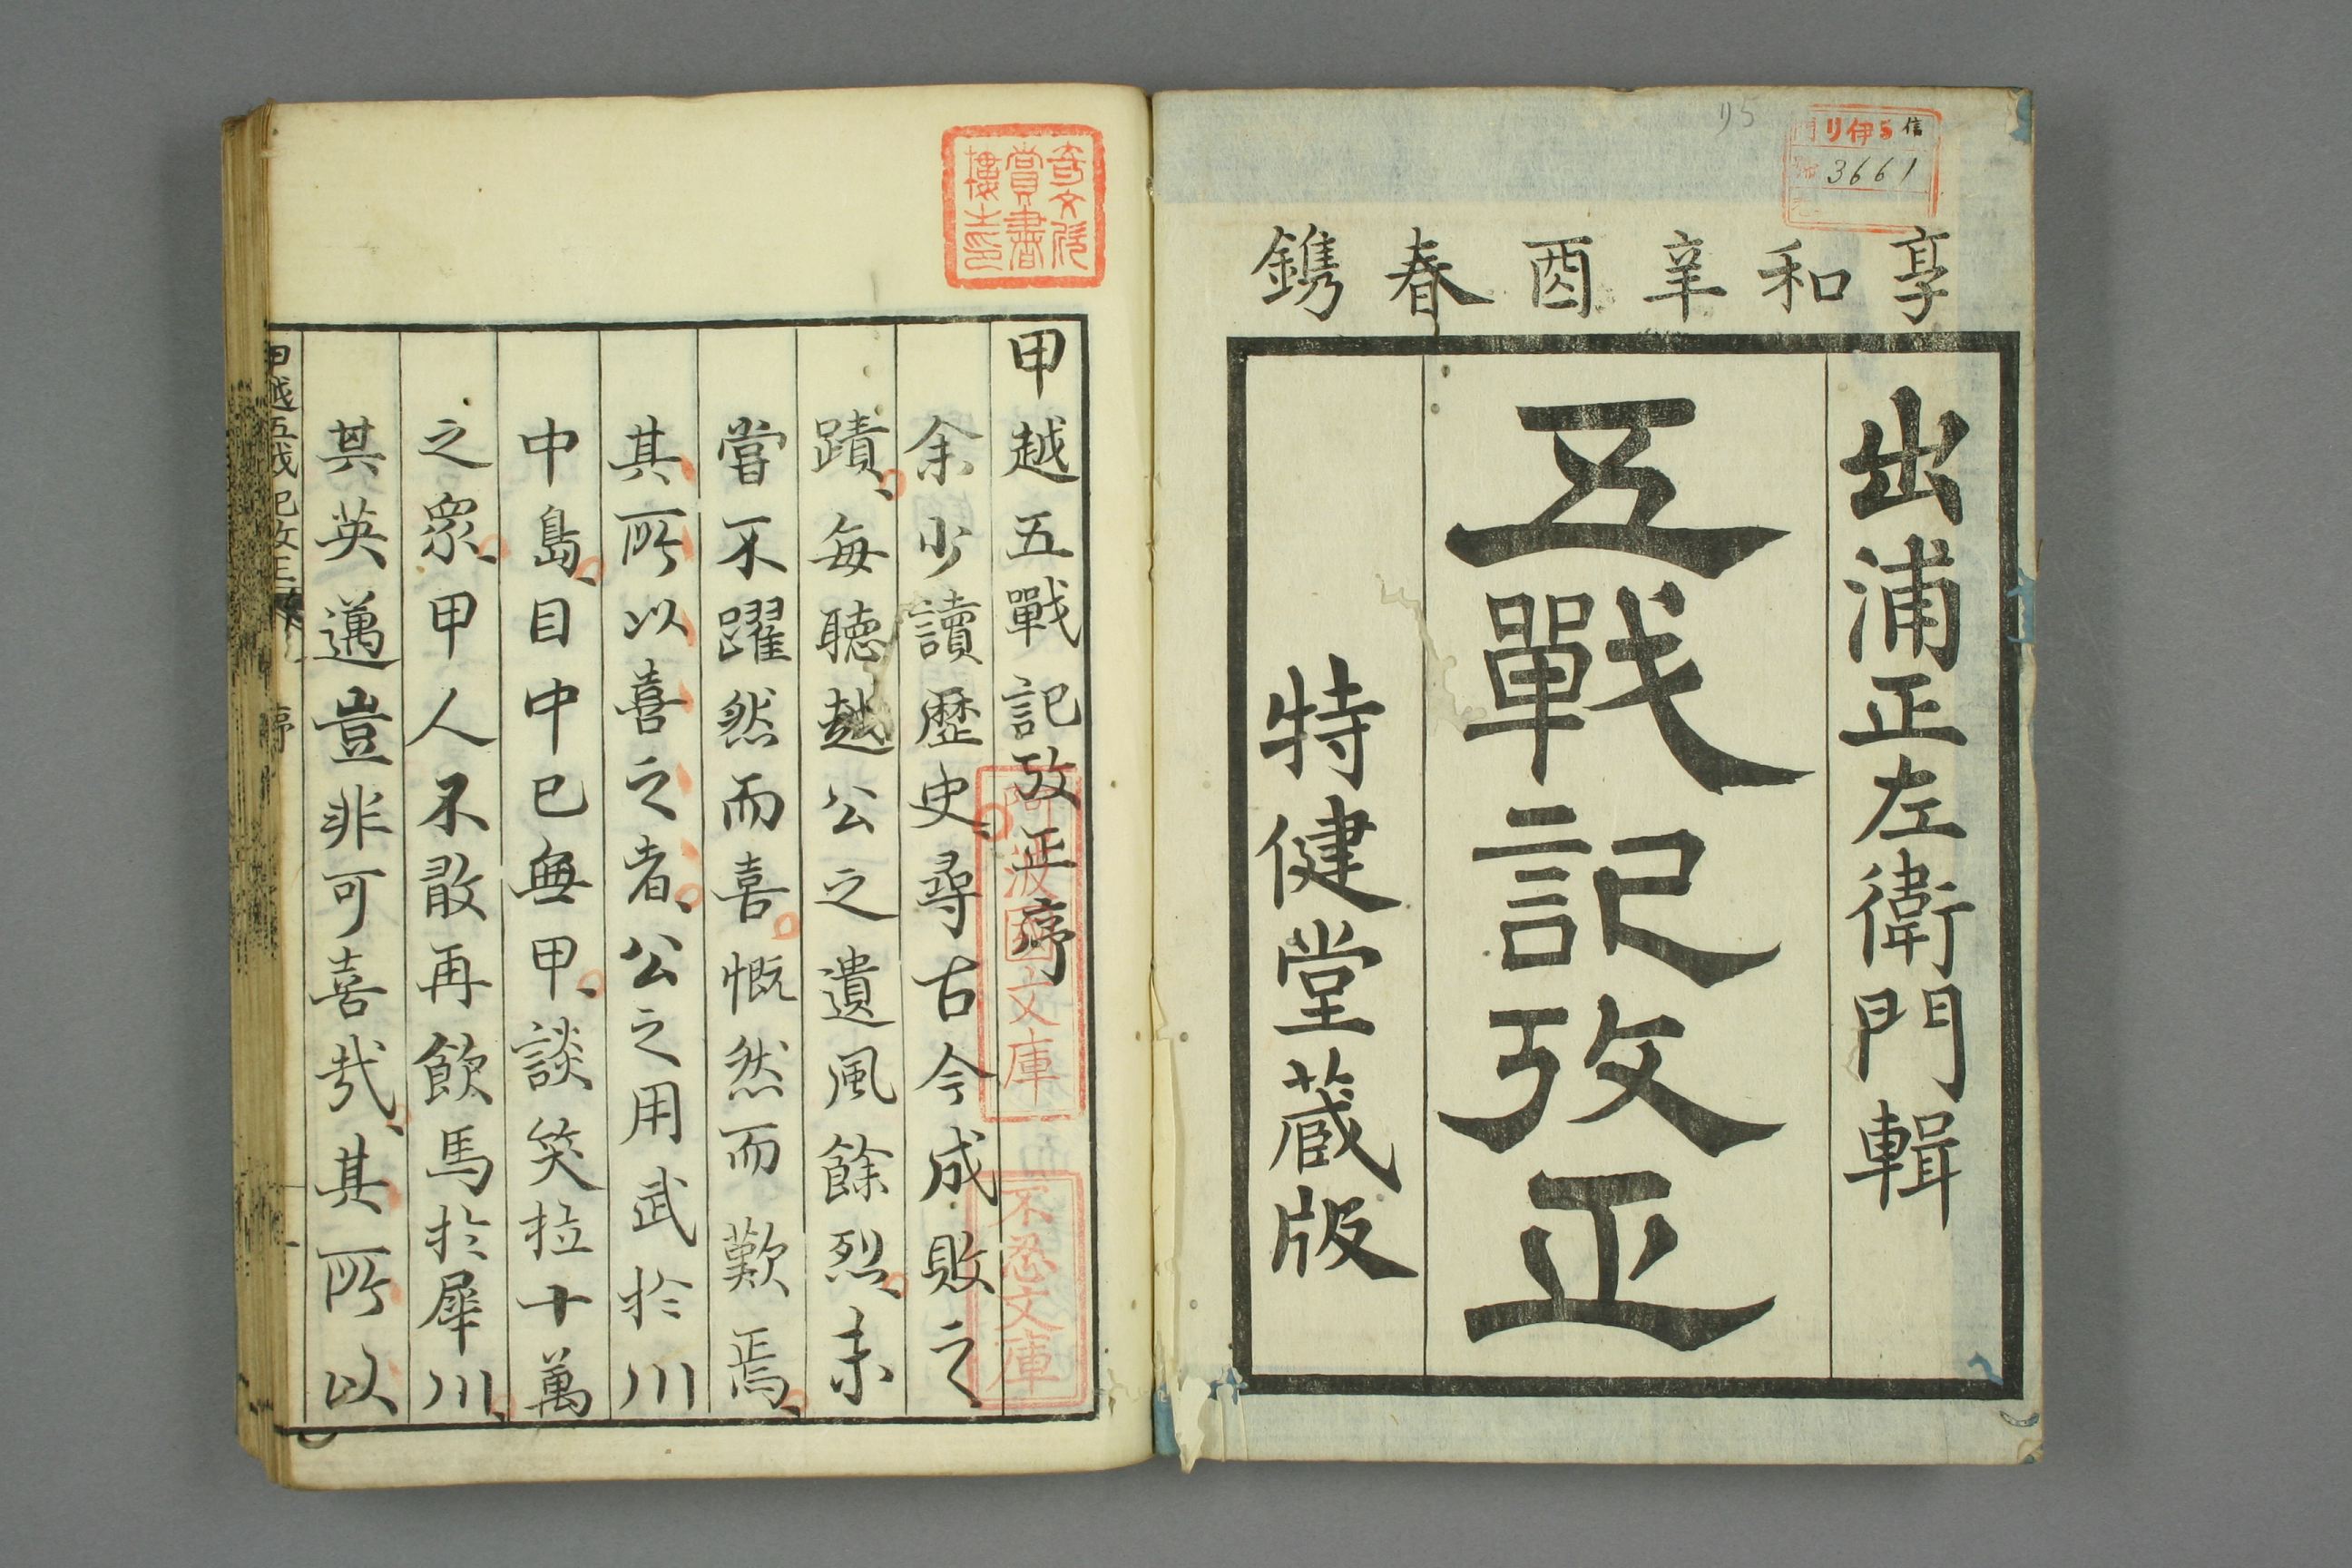 リ5
リ伊5信
3661
享和辛酉春鐫
出浦正左衛門輯
五戰記攷正
特健堂蔵版
奇文欣
賞書
樓士印
甲越五戰記攷正序
余少讀歴史、尋古今成敗之
蹟、每聴越公之遺風餘烈、未
嘗不躍然而喜慨然而歎焉、
其所以喜之者、公之用武於川
中島、目中已無甲、談笑拉十萬
之衆、甲人不敢再飲馬於犀川、
其英邁豈非可喜哉、其所以
阿波國文庫
不忍文庫
甲越五戰記攷正 序